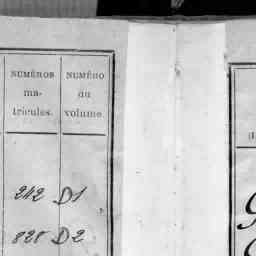 NUMÉROS NUMÉRO
ma- du
tricules. volume
242 D1
828 D2